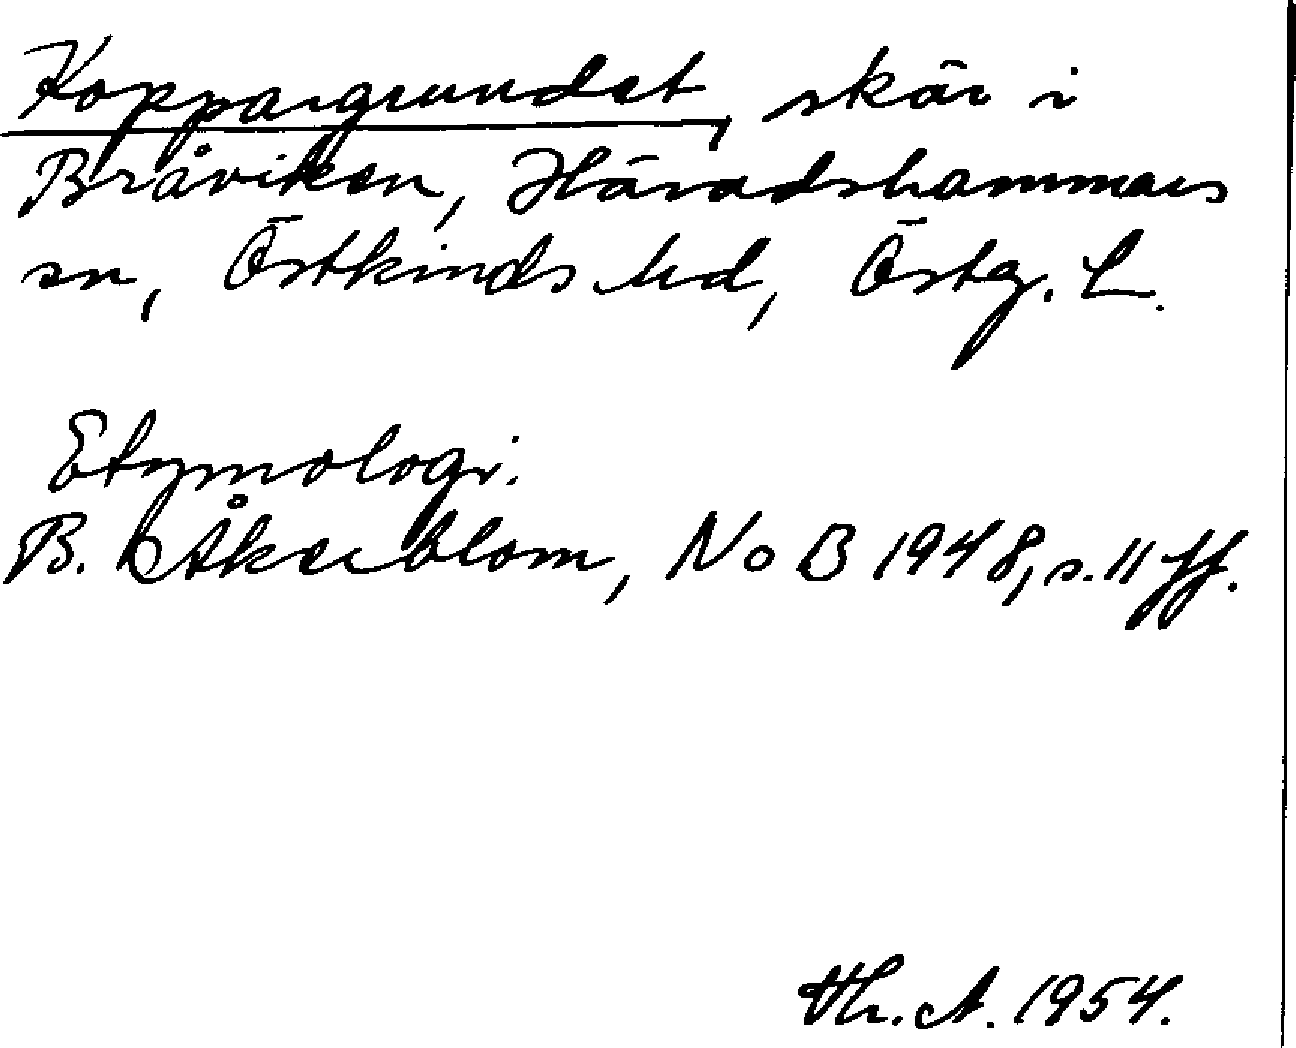 Koppargrundet, skär i
Bråviken, Häradshammars
sn, Östkinds hd, Östg. L.
Etymologi.
B. Åkerblom, NoB 1948, s. 11 ff.
Th. A. 1954.